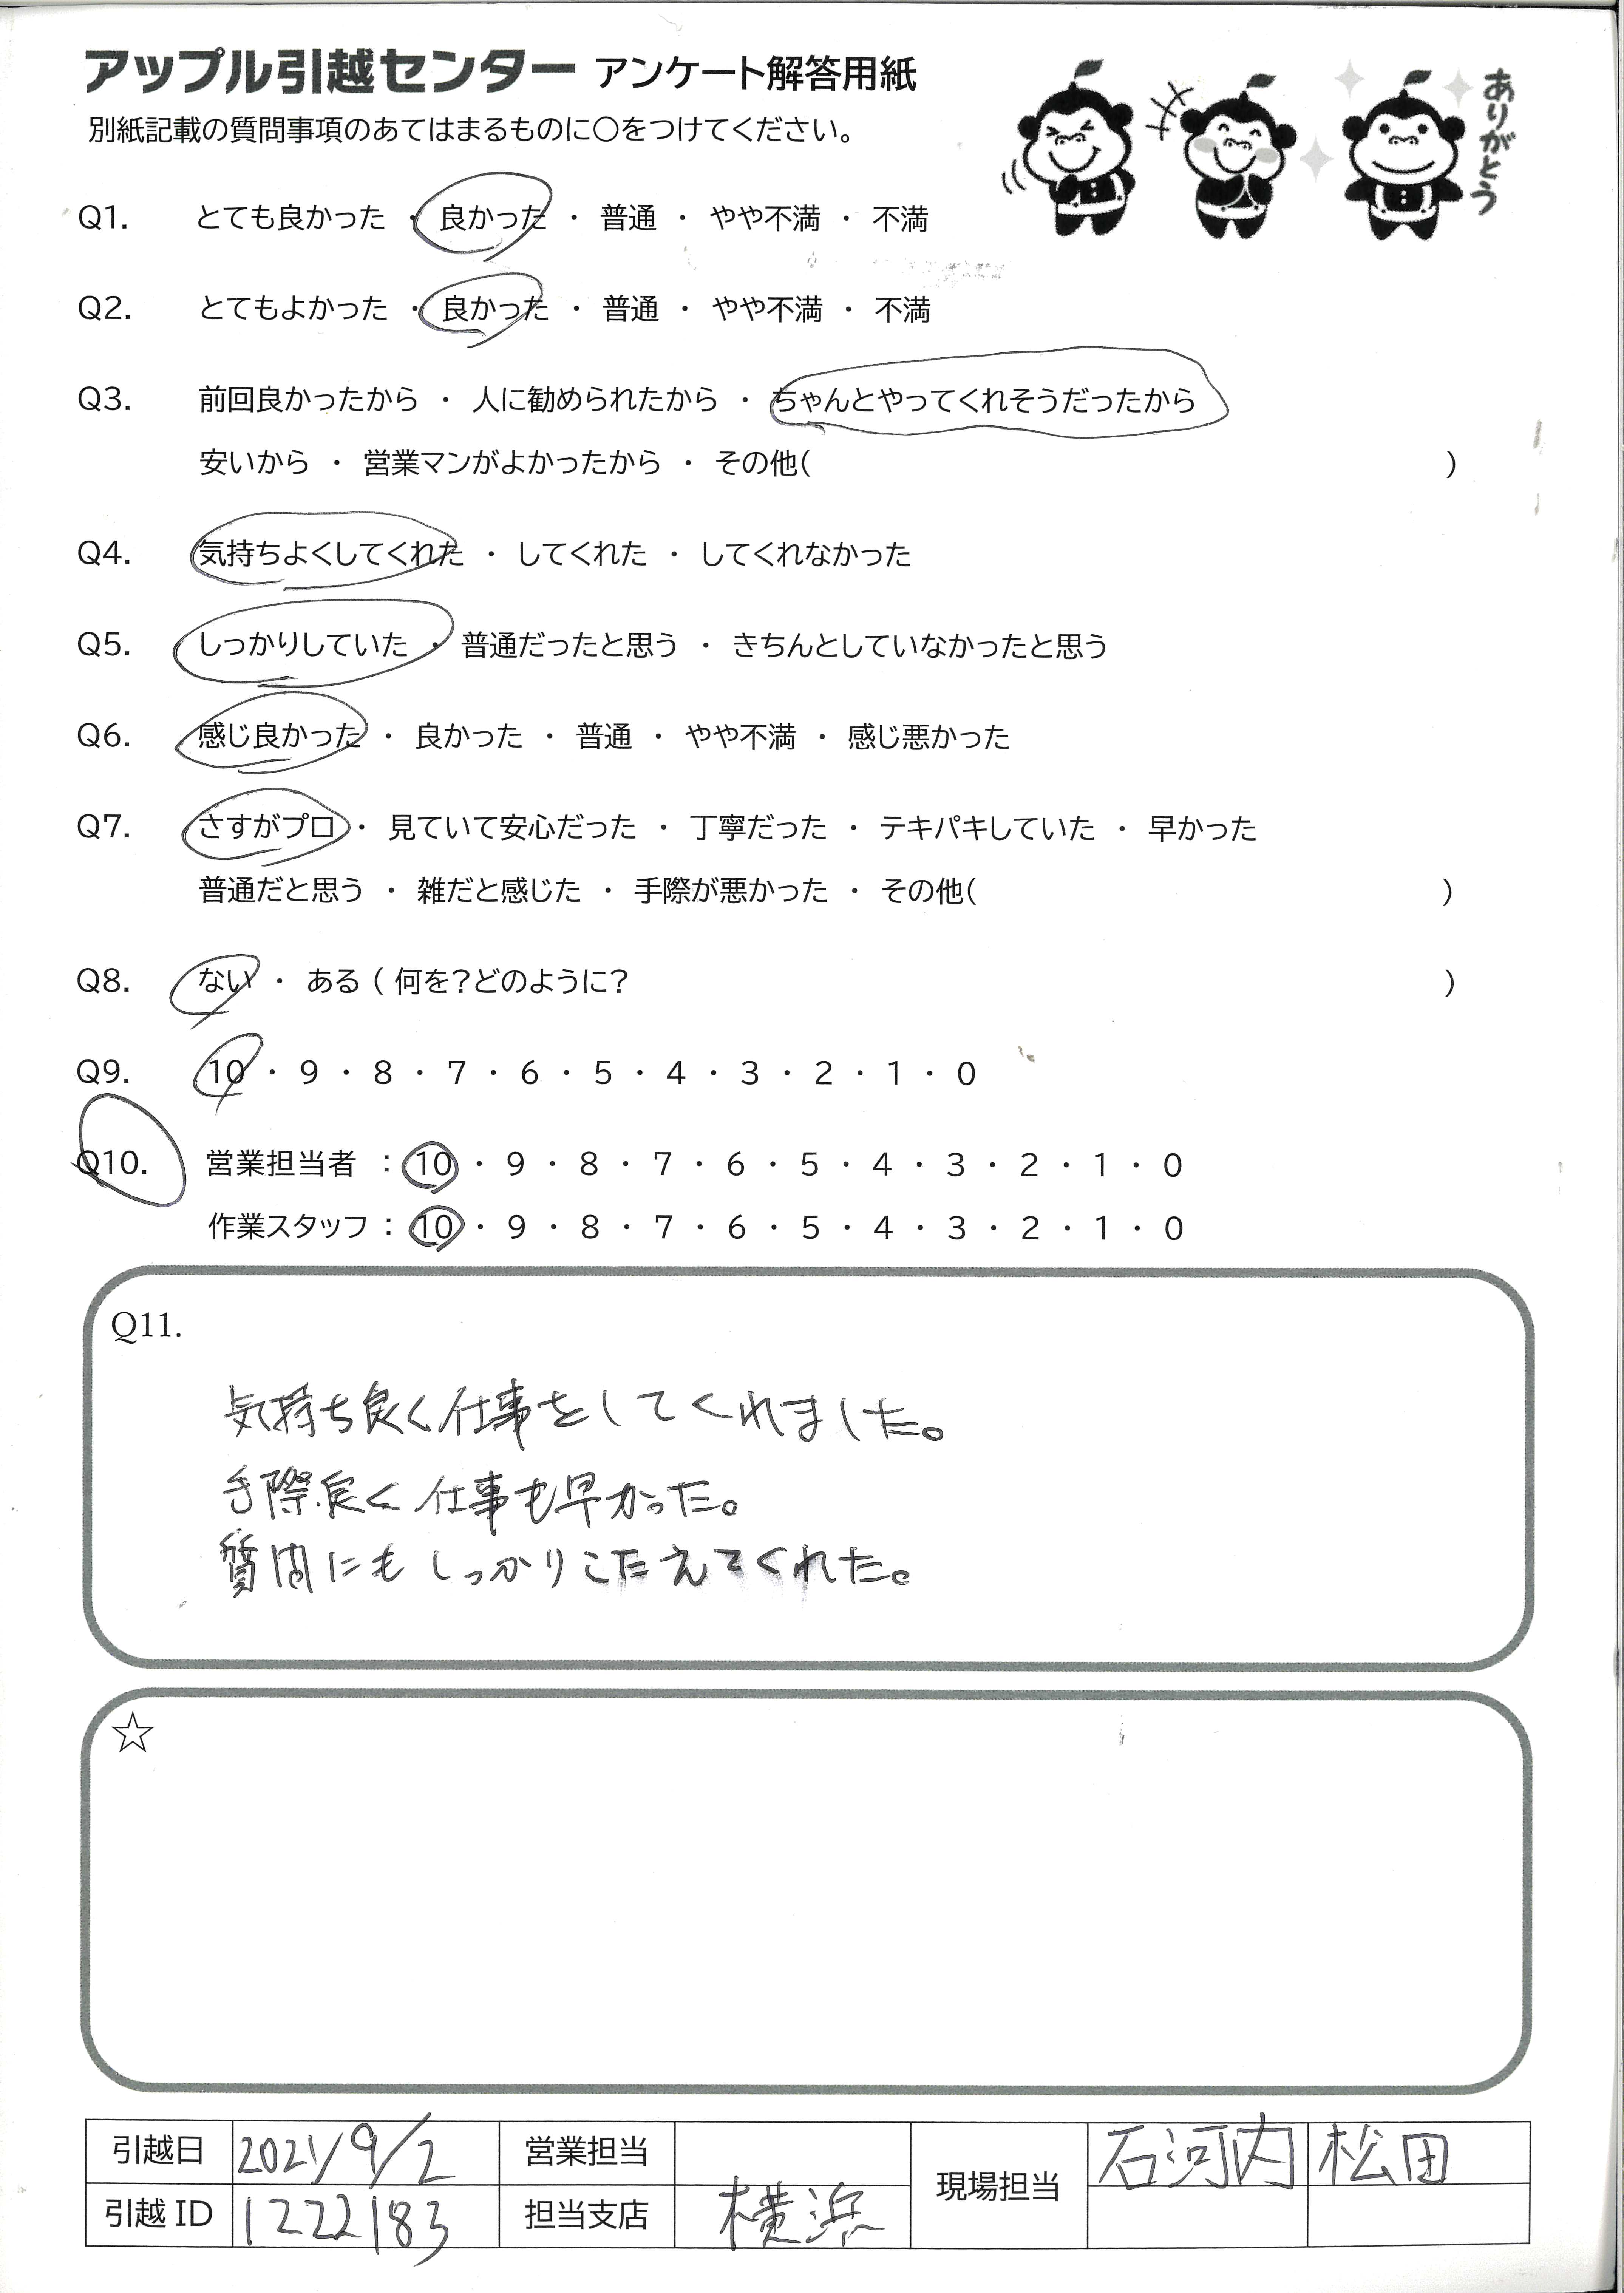 アップル引越センター アンケート解答用紙
別紙記載の質問事項のあてはまるものに○をつけてください。
ありがとう
Q1. とても良かった ・ 良かった ・ 普通 ・ やや不満 ・ 不満
Q2. とてもよかった ・ 良かった ・ 普通 ・ やや不満 ・ 不満
Q3. 前回良かったから ・ 人に勧められたから ・ ちゃんとやってくれそうだったから
安いから ・ 営業マンがよかったから ・ その他( )
Q4. 気持ちよくしてくれた ・ してくれた ・ してくれなかった
Q5. しっかりしていた ・ 普通だったと思う ・ きちんとしていなかったと思う
Q6. 感じ良かった ・ 良かった ・ 普通 ・ やや不満 ・ 感じ悪かった
Q7. さすがプロ ・ 見ていて安心だった ・ 丁寧だった ・ テキパキしていた ・ 早かった
普通だと思う ・ 雑だと感じた ・ 手際が悪かった ・ その他( )
Q8. ない ・ ある ( 何を?どのように? )
Q9. 10 ・ 9 ・ 8 ・ 7 ・ 6 ・ 5 ・ 4 ・ 3 ・ 2 ・ 1 ・ 0
Q10. 営業担当者 : 10 ・ 9 ・ 8 ・ 7 ・ 6 ・ 5 ・ 4 ・ 3 ・ 2 ・ 1 ・ 0
作業スタッフ : 10 ・ 9 ・ 8 ・ 7 ・ 6 ・ 5 ・ 4 ・ 3 ・ 2 ・ 1 ・ 0
Q11.
気持ち良く仕事をしてくれました。
手際良く仕事も早かった。
質問にもしっかりこたえてくれた。
☆
引越日 2021/9/2 営業担当 現場担当 石河内 松田
引越 ID 1222183 担当支店 横浜